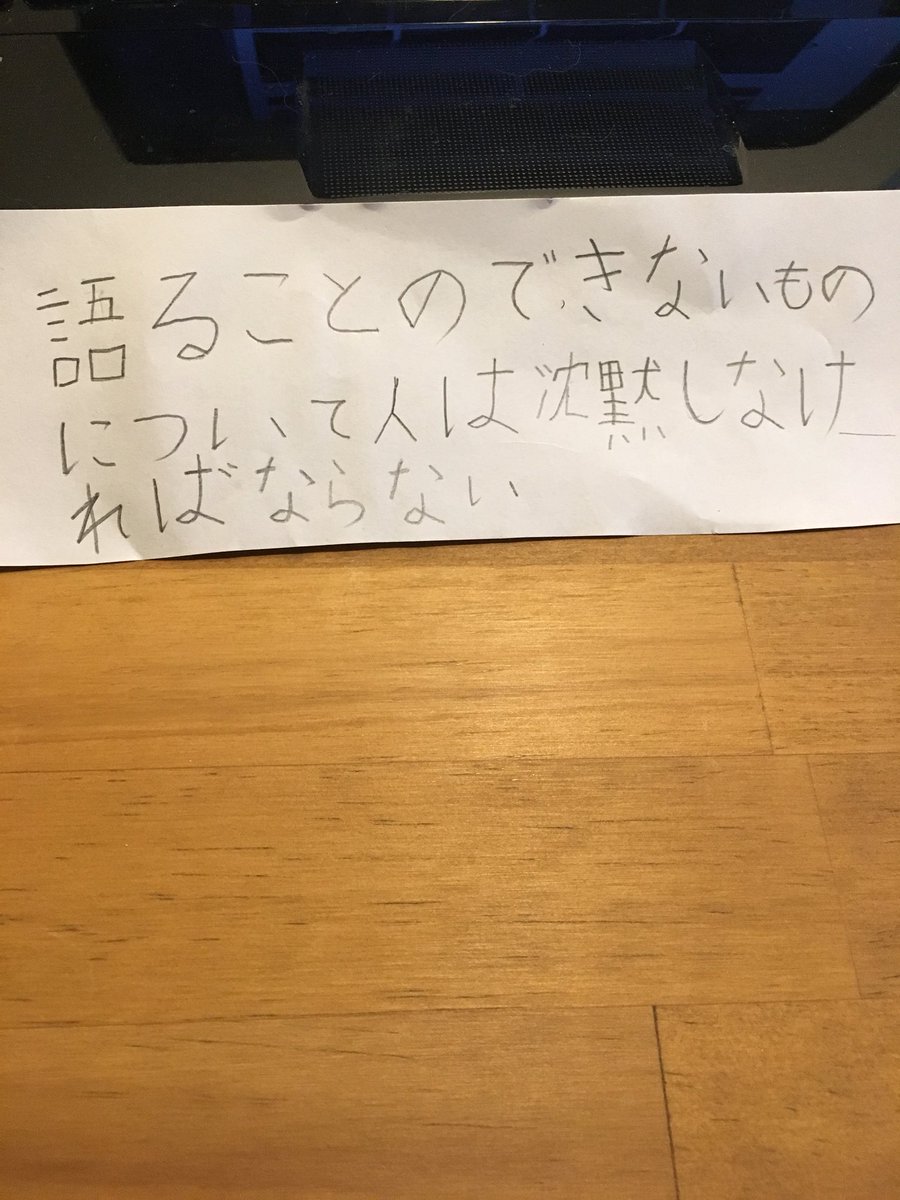 語ることのできないもの
について人は沈黙しなけ
ればならない